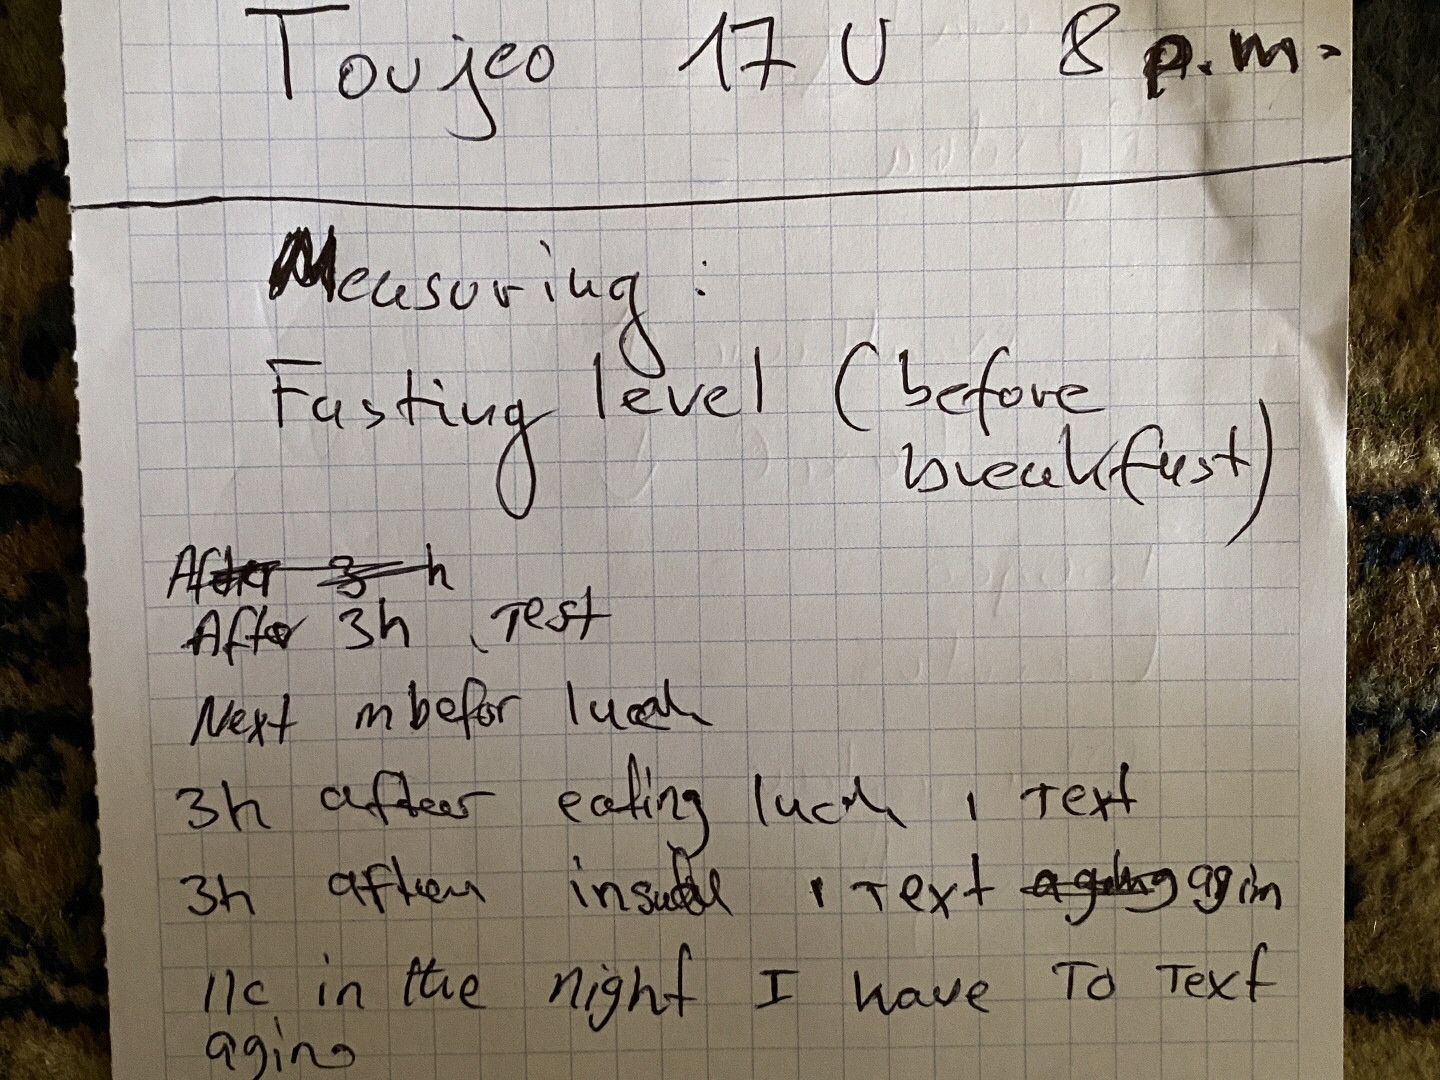 Toujeo 17 U 8 p.m.
Measuring :
Fasting level (before
breakfast)
After 3 h
After 3h , Test
Next m befor luch
3h after eating luch , Text
3h after , Text aging agin
11c in the night I have To Text
aging